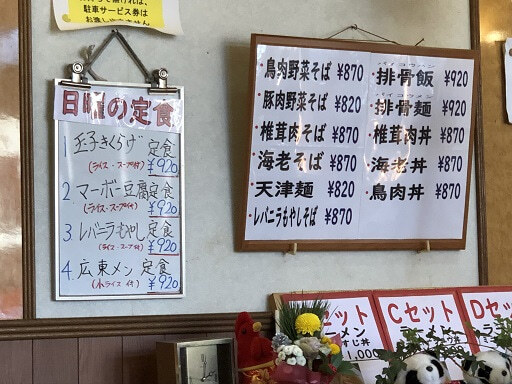 駐車サービス券は
お渡ししません
日曜の定食
1 玉子きくらげ 定食
(ライス・スープ付) ¥920
2. マーボー豆腐定食
(ライス・スープ付) ¥920
3. レバニラもやし定食
(ライス・スープ付) ¥920
4. 広東メン 定食
(小ライス付) ¥920
・鳥肉野菜そば ¥870
・豚肉野菜そば ¥820
・椎茸肉そば ¥870
・海老そば ¥870
・天津麺 ¥820
・レバニラもやしそば ¥870
・排骨飯 ¥920
・排骨麺 ¥920
・椎茸肉丼 ¥870
・海老丼 ¥870
・鳥肉丼 ¥870
セット
ラーメン
1,000
Cセット
ラーメン
Dセット